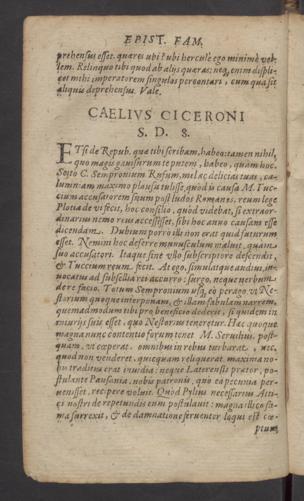 EPIST. FAM.
prehensus esset. quares ubi? ubi herculè ego minimè vel-
lem. Relinquo tibi quod ab alijs quæras: neq, enim displi-
cet mihi, imperatorem singulos percontari, cum qua sit
aliquis deprehensus. Vale.
CAELIVS CICERONI
S. D. 8.
ETsi de Repub. quæ tibi scribam, habeo: tamen nihil,
quo magis gauisurum te putem, habeo, quàm hoc.
Scito C. Sempronium Rufum, mel ac delicias tuas, ca-
lumniam maximo plausu tulisse. quæris, qua in causa? M. Tuc-
cium accusatorem suum post ludos Romanos, reum lege
Plotia de vi fecit, hoc consilio, quod videbat, si extraor-
dinarius nemo reus accessisset, sibi hoc anno causam esse
dicendam. Dubium porro illi non erat quid futurum
esset. Nemini hoc deferre munusculum maluit, quàm
suo accusatori. Itaque sine vllo subscriptore descendit,
& Tuccium reum fecit. At ego, simulatque audiui, in-
uocatus ad subsellia rei accurro: surgo, neque verbum
de re facio. Totum Sempronium usq, eo perago, vt Ve-
storium quoque interponam, & illam fabulam narrem,
quemadmodum tibi pro beneficio dederit, si quid em in
iniurijs suis esset, quo Vestorius teneretur. Hæc quoque
magna nunc contentio forum tenet. M. Seruilius. post-
quam, vt cœperat. omnibus in rebus turbarat, nec,
quod non venderet, quicquam reliquerat. maxima no-
bis traditus erat inuidia: neque Laterensis prætor, po-
stulante Pausania, nobis patronis, quo ea pecunia per-
uenisset, recipere voluit. Quod Pylius necessarius Atti-
ci nostri de repetundis eum postulauit: magna illico fa-
ma surrexit, & de damnatione feruenter loqui est cœ-
ptum